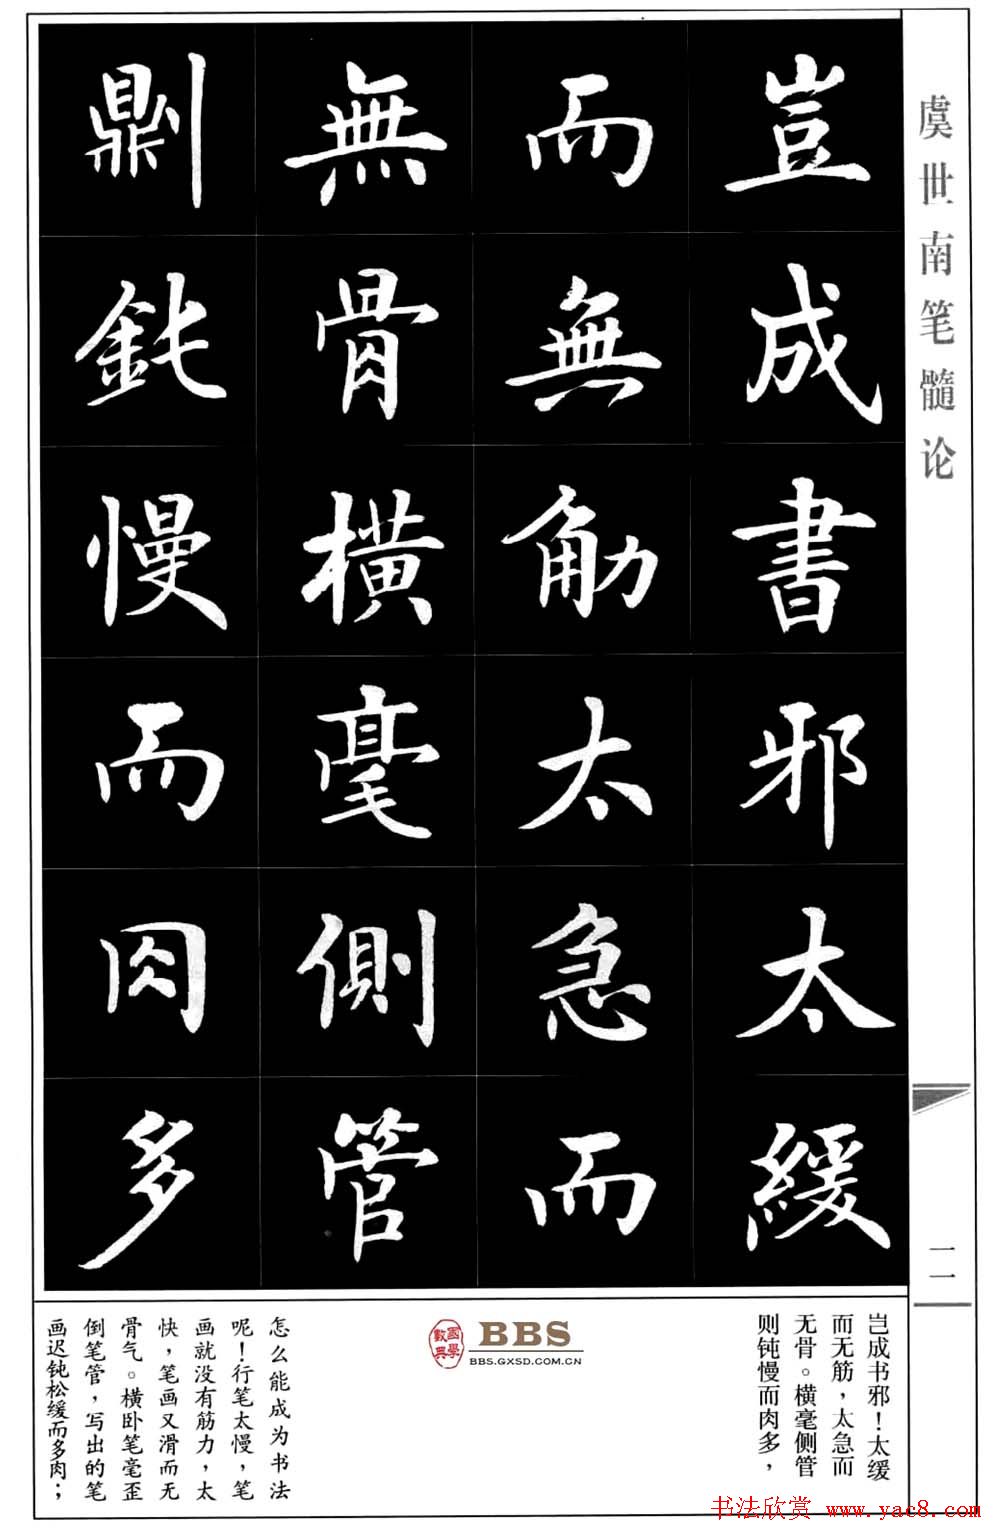 虞世南笔髓论
一一
豈成書邪太緩
而無觔太急而
無骨橫毫側管
鼎刂鈍慢而肉多
岂成书邪！太缓
而无筋，太急而
无骨。横毫侧管
则钝慢而肉多，
國學數典
BBS
BBS.GXSD.COM.CN
怎么能成为书法
呢！行笔太慢，笔
画就没有筋力，太
快，笔画又滑而无
骨气。横卧笔毫歪
倒笔管，写出的笔
画迟钝松缓而多肉；
书法欣赏 www.yac8.com